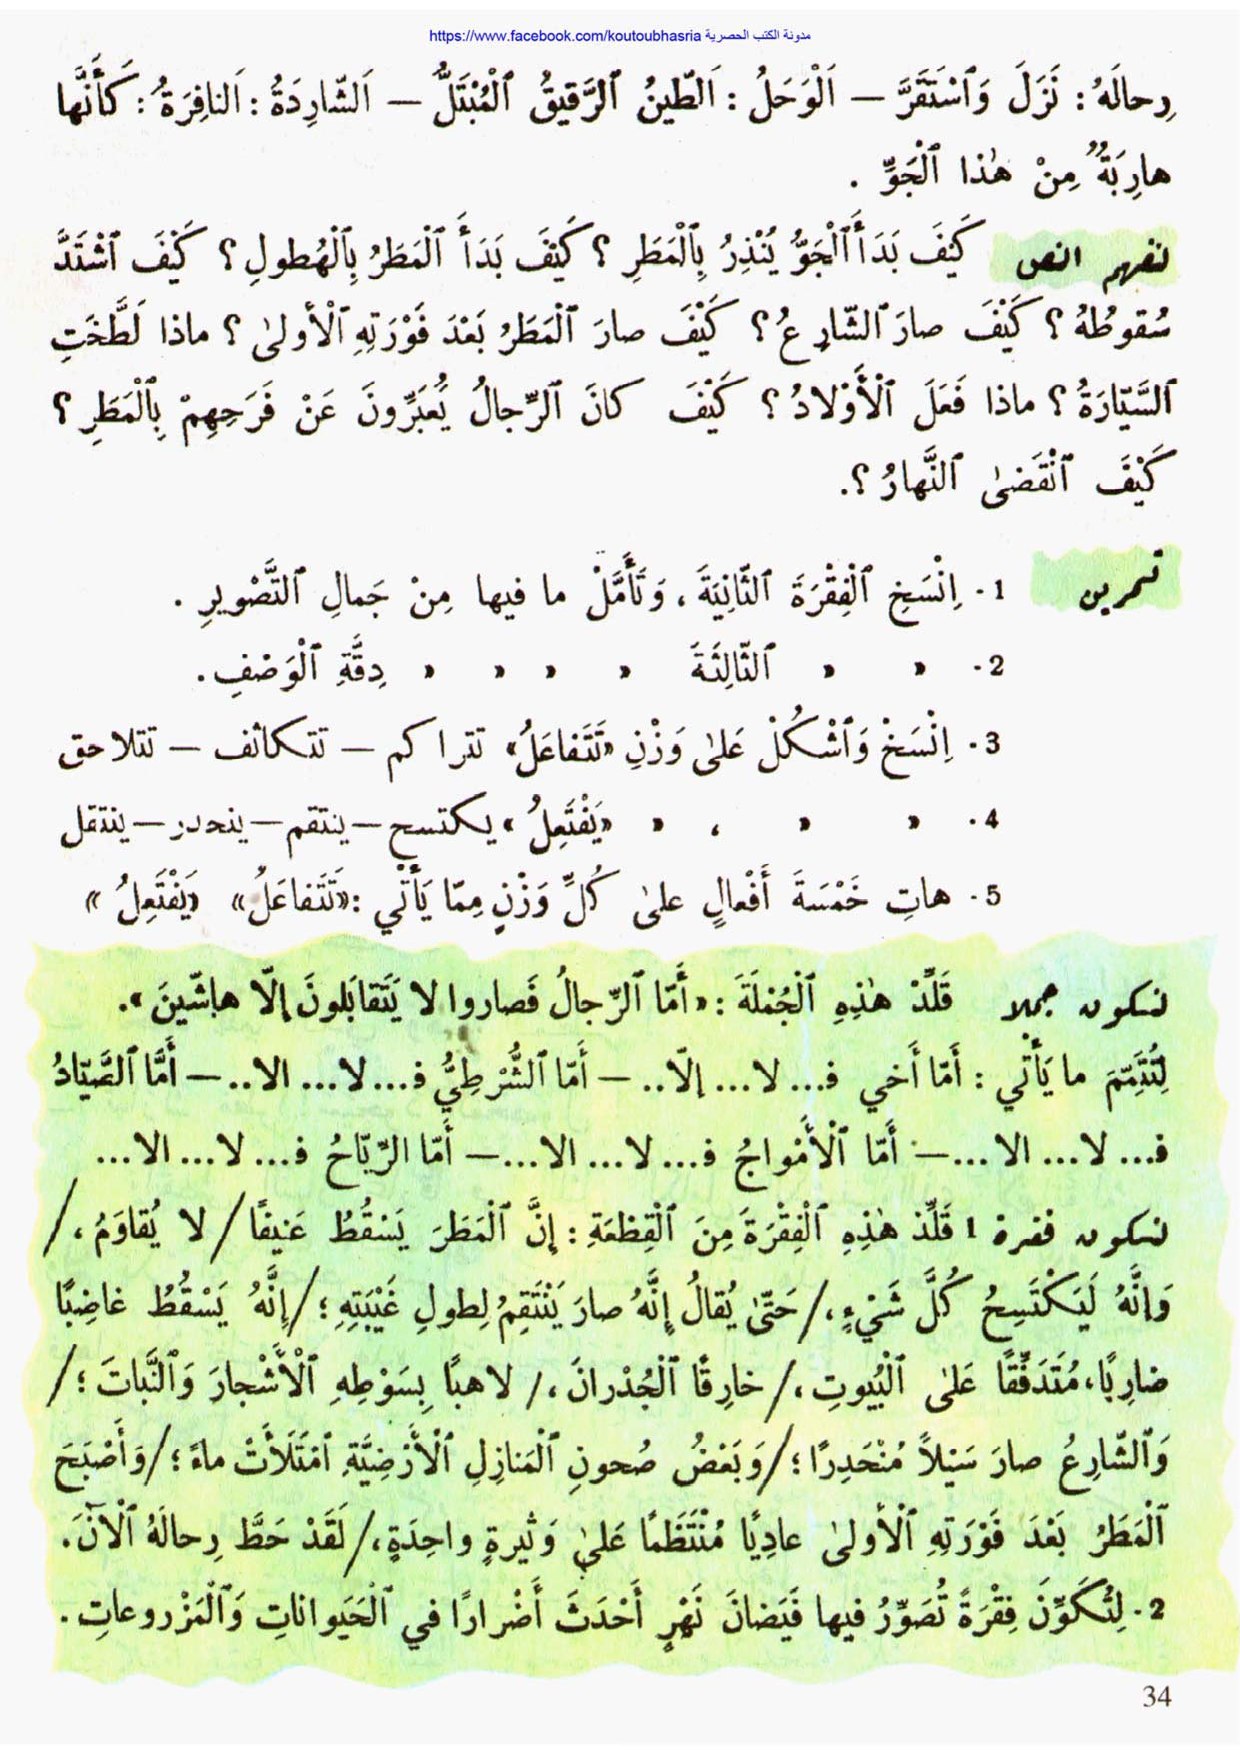 مدونة الكتب الحصرية https://www.facebook.com/koutoubhasria
رِحالَهُ : نَزَلَ وَٱسْتَقَرَّ — اَلْوَحَلُ : اَلطّينُ ٱلرَّقيقُ ٱلْمُبْتَلُّ — اَلشّارِدَةُ : اَلنافِرَةُ : كَأَنَّها
هارِبَةٌ مِنْ هٰذا ٱلْجَوِّ .
لنفهم النص كَيْفَ بَدَأَ ٱلْجَوُّ يُنْذِرُ بِٱلْمَطَرِ ؟ كَيْفَ بَدَأَ ٱلْمَطَرُ بِٱلْهُطولِ ؟ كَيْفَ ٱشْتَدَّ
سُقوطُهُ ؟ كَيْفَ صارَ ٱلشّارِعُ ؟ كَيْفَ صارَ ٱلْمَطَرُ بَعْدَ فَوْرَتِهِ ٱلْأولىٰ ؟ ماذا لَطَّخَتِ
ٱلسَّيّارَةُ ؟ ماذا فَعَلَ ٱلْأَوْلادُ ؟ كَيْفَ كانَ ٱلرِّجالُ يُعَبِّرونَ عَنْ فَرَحِهِمْ بِٱلْمَطَرِ ؟
كَيْفَ ٱنْقَضىٰ ٱلنَّهارُ ؟.
تمرين 1 . اِنْسَخِ ٱلْفِقْرَةَ ٱلثّانِيَةَ ، وَتَأَمَّلْ ما فيها مِنْ جَمالِ ٱلتَّصْويرِ .
2 . » » ٱلثّالِثَةَ » » » » دِقَّةِ ٱلْوَصْفِ .
3 . اِنْسَخْ وَٱشْكُلْ عَلىٰ وَزْنِ «تَتَفاعَلُ» تتراكم — تتكاثف — تتلاحق
4 . » » ، » «يَفْتَعِلُ» يكتسح — ينتقم — ينحدر — ينتقل
5 . هاتِ خَمْسَةَ أَفْعالٍ علىٰ كُلِّ وَزْنٍ مِمّا يَأْتي : «تَتَفاعَلُ» «يَفْتَعِلُ»
لنكون جملا قَلِّدْ هٰذِهِ ٱلْجُمْلَةَ : «أَمّا ٱلرِّجالُ فَصاروا لا يَتَقابَلونَ إِلّا هاشّينَ».
لِنُتَمِّمَ ما يَأْتي : أَمّا أَخي فـ... لا... إِلّا.. — أَمّا ٱلشُّرْطِيُّ فـ... لا... الا.. — أَمَّا ٱلصَّيّادُ
فـ... لا... الا... — أَمّا ٱلْأَمْواجُ فـ... لا... الا... — أَمّا الرِّيّاحُ فـ... لا... الا...
لنكون فقرة 1 قَلِّدْ هٰذِهِ ٱلْفِقْرَةَ مِنَ ٱلْقِطْعَةِ : إِنَّ ٱلْمَطَرَ يَسْقُطُ عَنيفًا / لا يُقاوَمُ ، /
وَإِنَّهُ لَيَكْتَسِحُ كُلَّ شَيْءٍ ، / حَتّىٰ يُقالُ إِنَّهُ صارَ يَنْتَقِمُ لِطولِ غَيْبَتِهِ ؛ / إِنَّهُ يَسْقُطُ غاضِبًا
ضارِبًا ، مُتَدَفِّقًا عَلىٰ ٱلْبُيوتِ ، / خارِقًا ٱلْجُدْرانَ ، / لاهِبًا بِسَوْطِهِ ٱلْأَشْجارَ وَٱلنَّباتَ ؛ /
وَٱلشّارِعُ صارَ سَيْلاً مُنْحَدِرًا ؛ / وَبَعْضُ صُحونِ ٱلْمَنازِلِ ٱلْأَرْضِيَّةِ ٱمْتَلَأَتْ ماءً ؛ / وَأَصْبَحَ
ٱلْمَطَرُ بَعْدَ فَوْرَتِهِ ٱلْأولىٰ عادِيًا مُنْتَظَمًا عَلىٰ وَثيرةٍ واحِدَةٍ ، / لَقَدْ حَطَّ رِحالَهُ ٱلْآنَ .
2 . لِنُكَوِّنَ فِقْرَةً نُصَوِّرُ فيها فَيَضانَ نَهْرٍ أَحْدَثَ أَضْرارًا في ٱلْحَيَواناتِ وَٱلْمَزْروعاتِ .
34